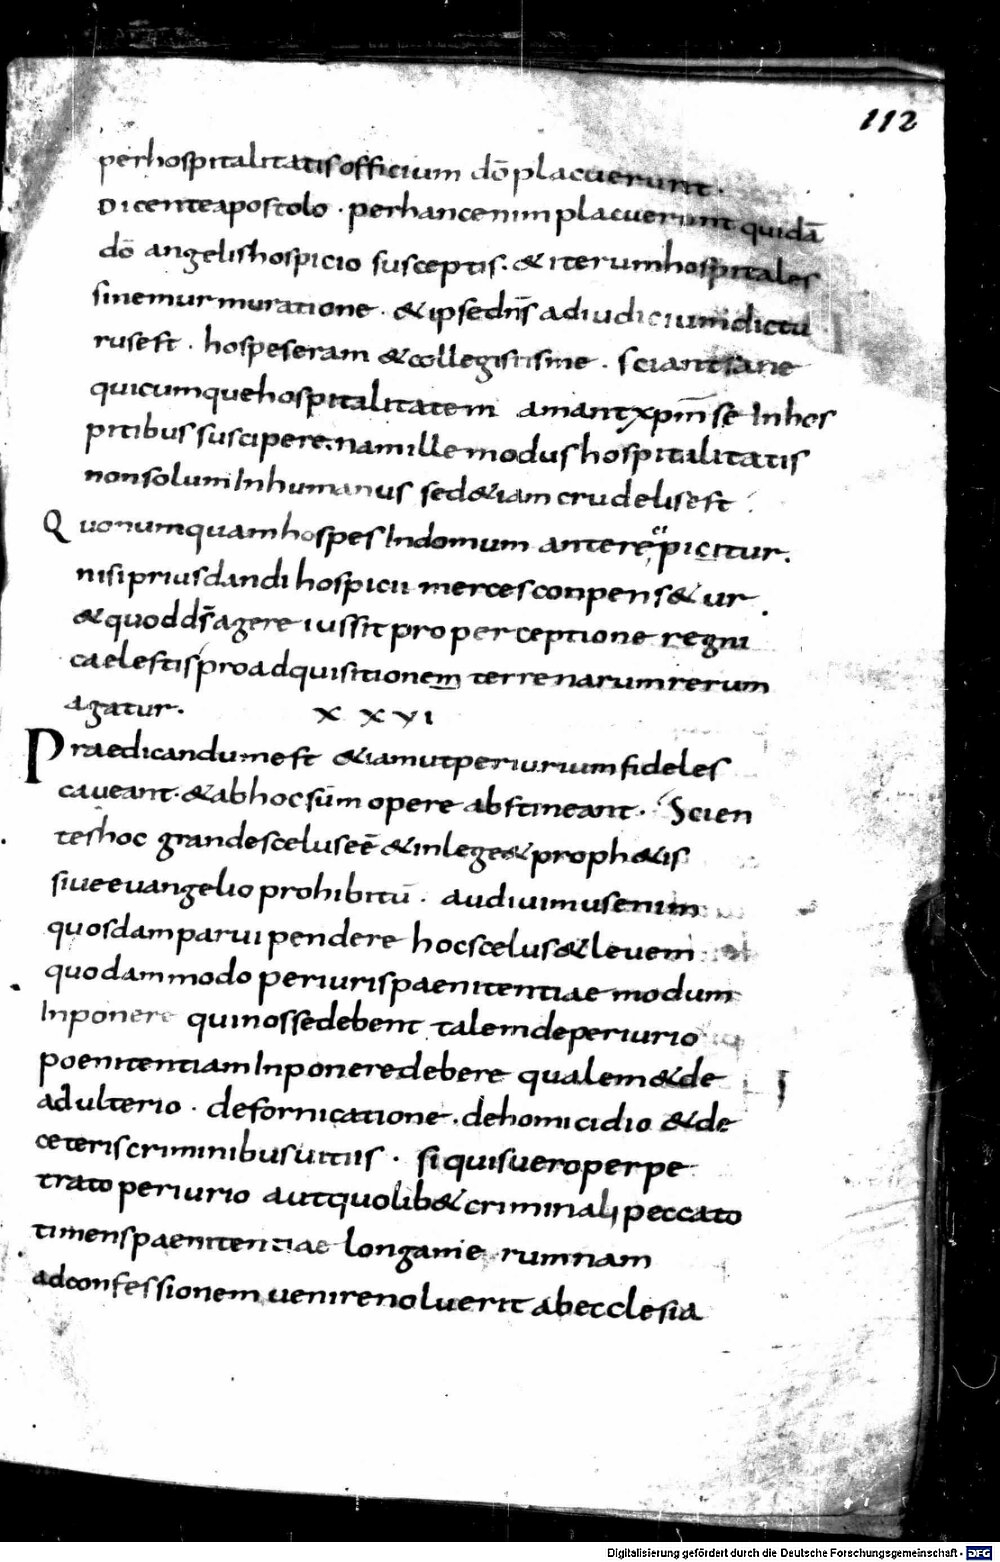 112
perhospitalitatisofficium dō placuerunt.
Dicenteapostolo · perhancenim placuerunt quidā
dō angelishospicio susceptis: & iterumhospitales
sinemurmuratione · & ipsedn̄s adiudiciumdictu
rusest · hospeseram &collegistisme · sciantsane
quicumquehospitalitatem amantxpm̄ se Inhos
pitibus suscipere. namille modus hospitalitatis
nonsolumInhumanus sed&iam crudelisest
Quonumquamhospes Indomum antere picitur.
nisipriusdandi hospicii merces conpens&ur.
&quodds̄agere iussit pro perceptione regni
caelestisproadquisitionem terrenarumrerum
agatur. XXVI
Praedicandumest &iamutperiuriumfideles
caveant. &abhocsūm opere abstineant. Scien
teshoc grandescelusee̅ &inlege& proph&is
siveevangelio prohibitū. audivimusenim
quosdamparvipendere hocscelus&levem
quodammodo periurispaenitentiae modum
Inponere quinossedebent talemdeperiurio
poenitentiamInponeredebere qualem&de
adulterio · defornicatione · dehomicidio &de
ceteriscriminibusvitiis · siquisveroperpe
trato periurio autquolib&criminali peccato
timenspaenitentiae longam e rumnam
adconfessionem venirenoluerit abecclesia
Digitalisierung gefördert durch die Deutsche Forschungsgemeinschaft - DFG